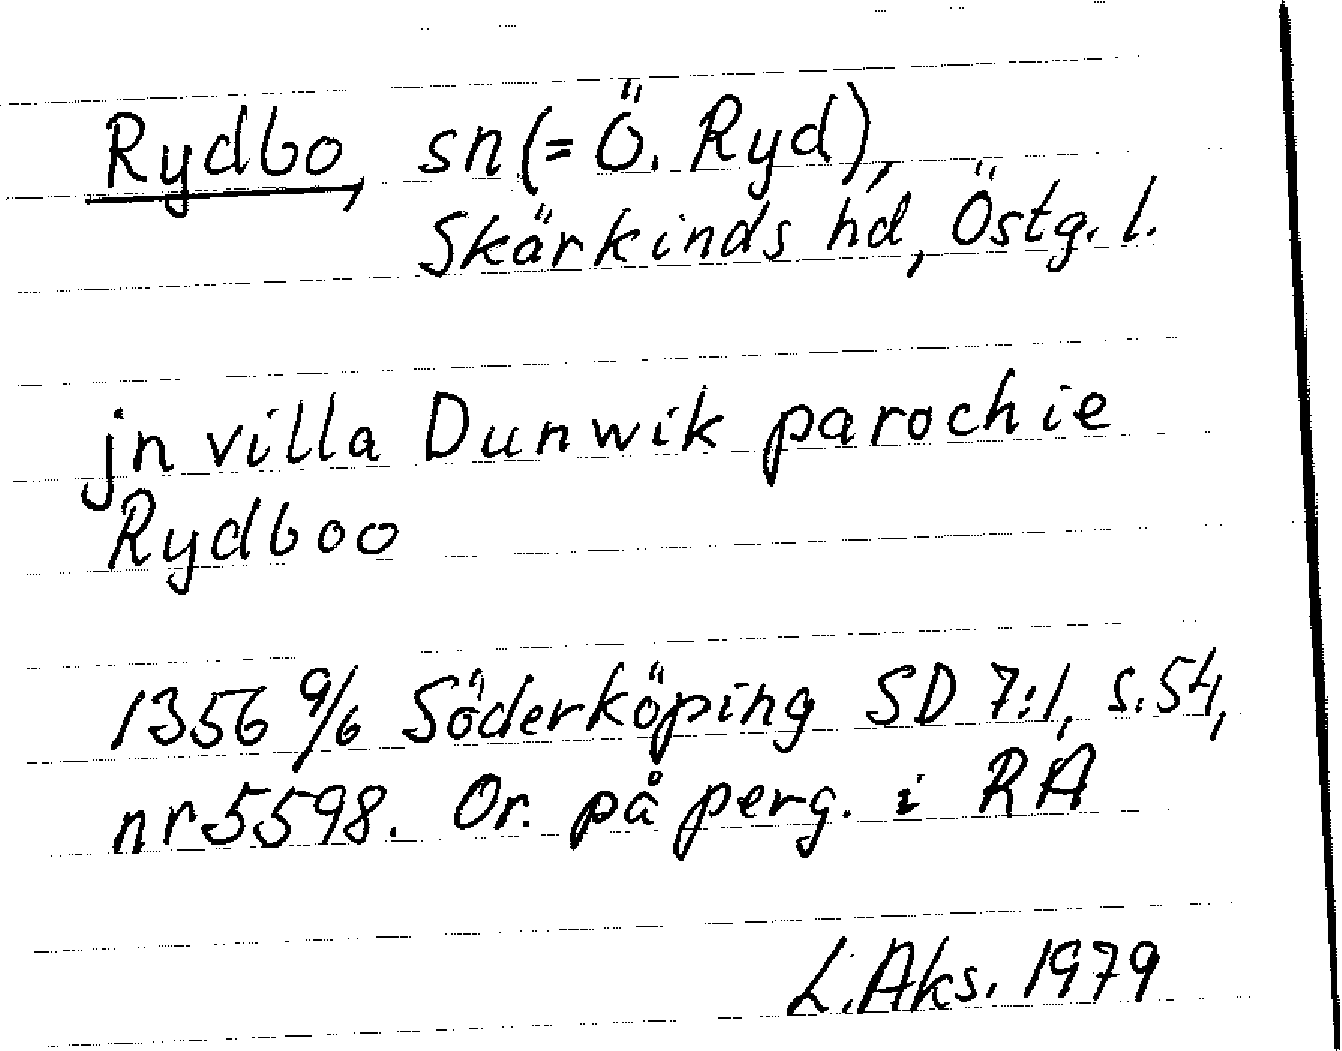 Rydbo, sn (= Ö. Ryd),
Skärkinds hd, Östg. l.
jn villa Dunwik parochie
Rydboo
1356 9/6 Söderköping SD 7:1, s. 54,
nr 5598. Or. på perg. i RA
L. Aks. 1979